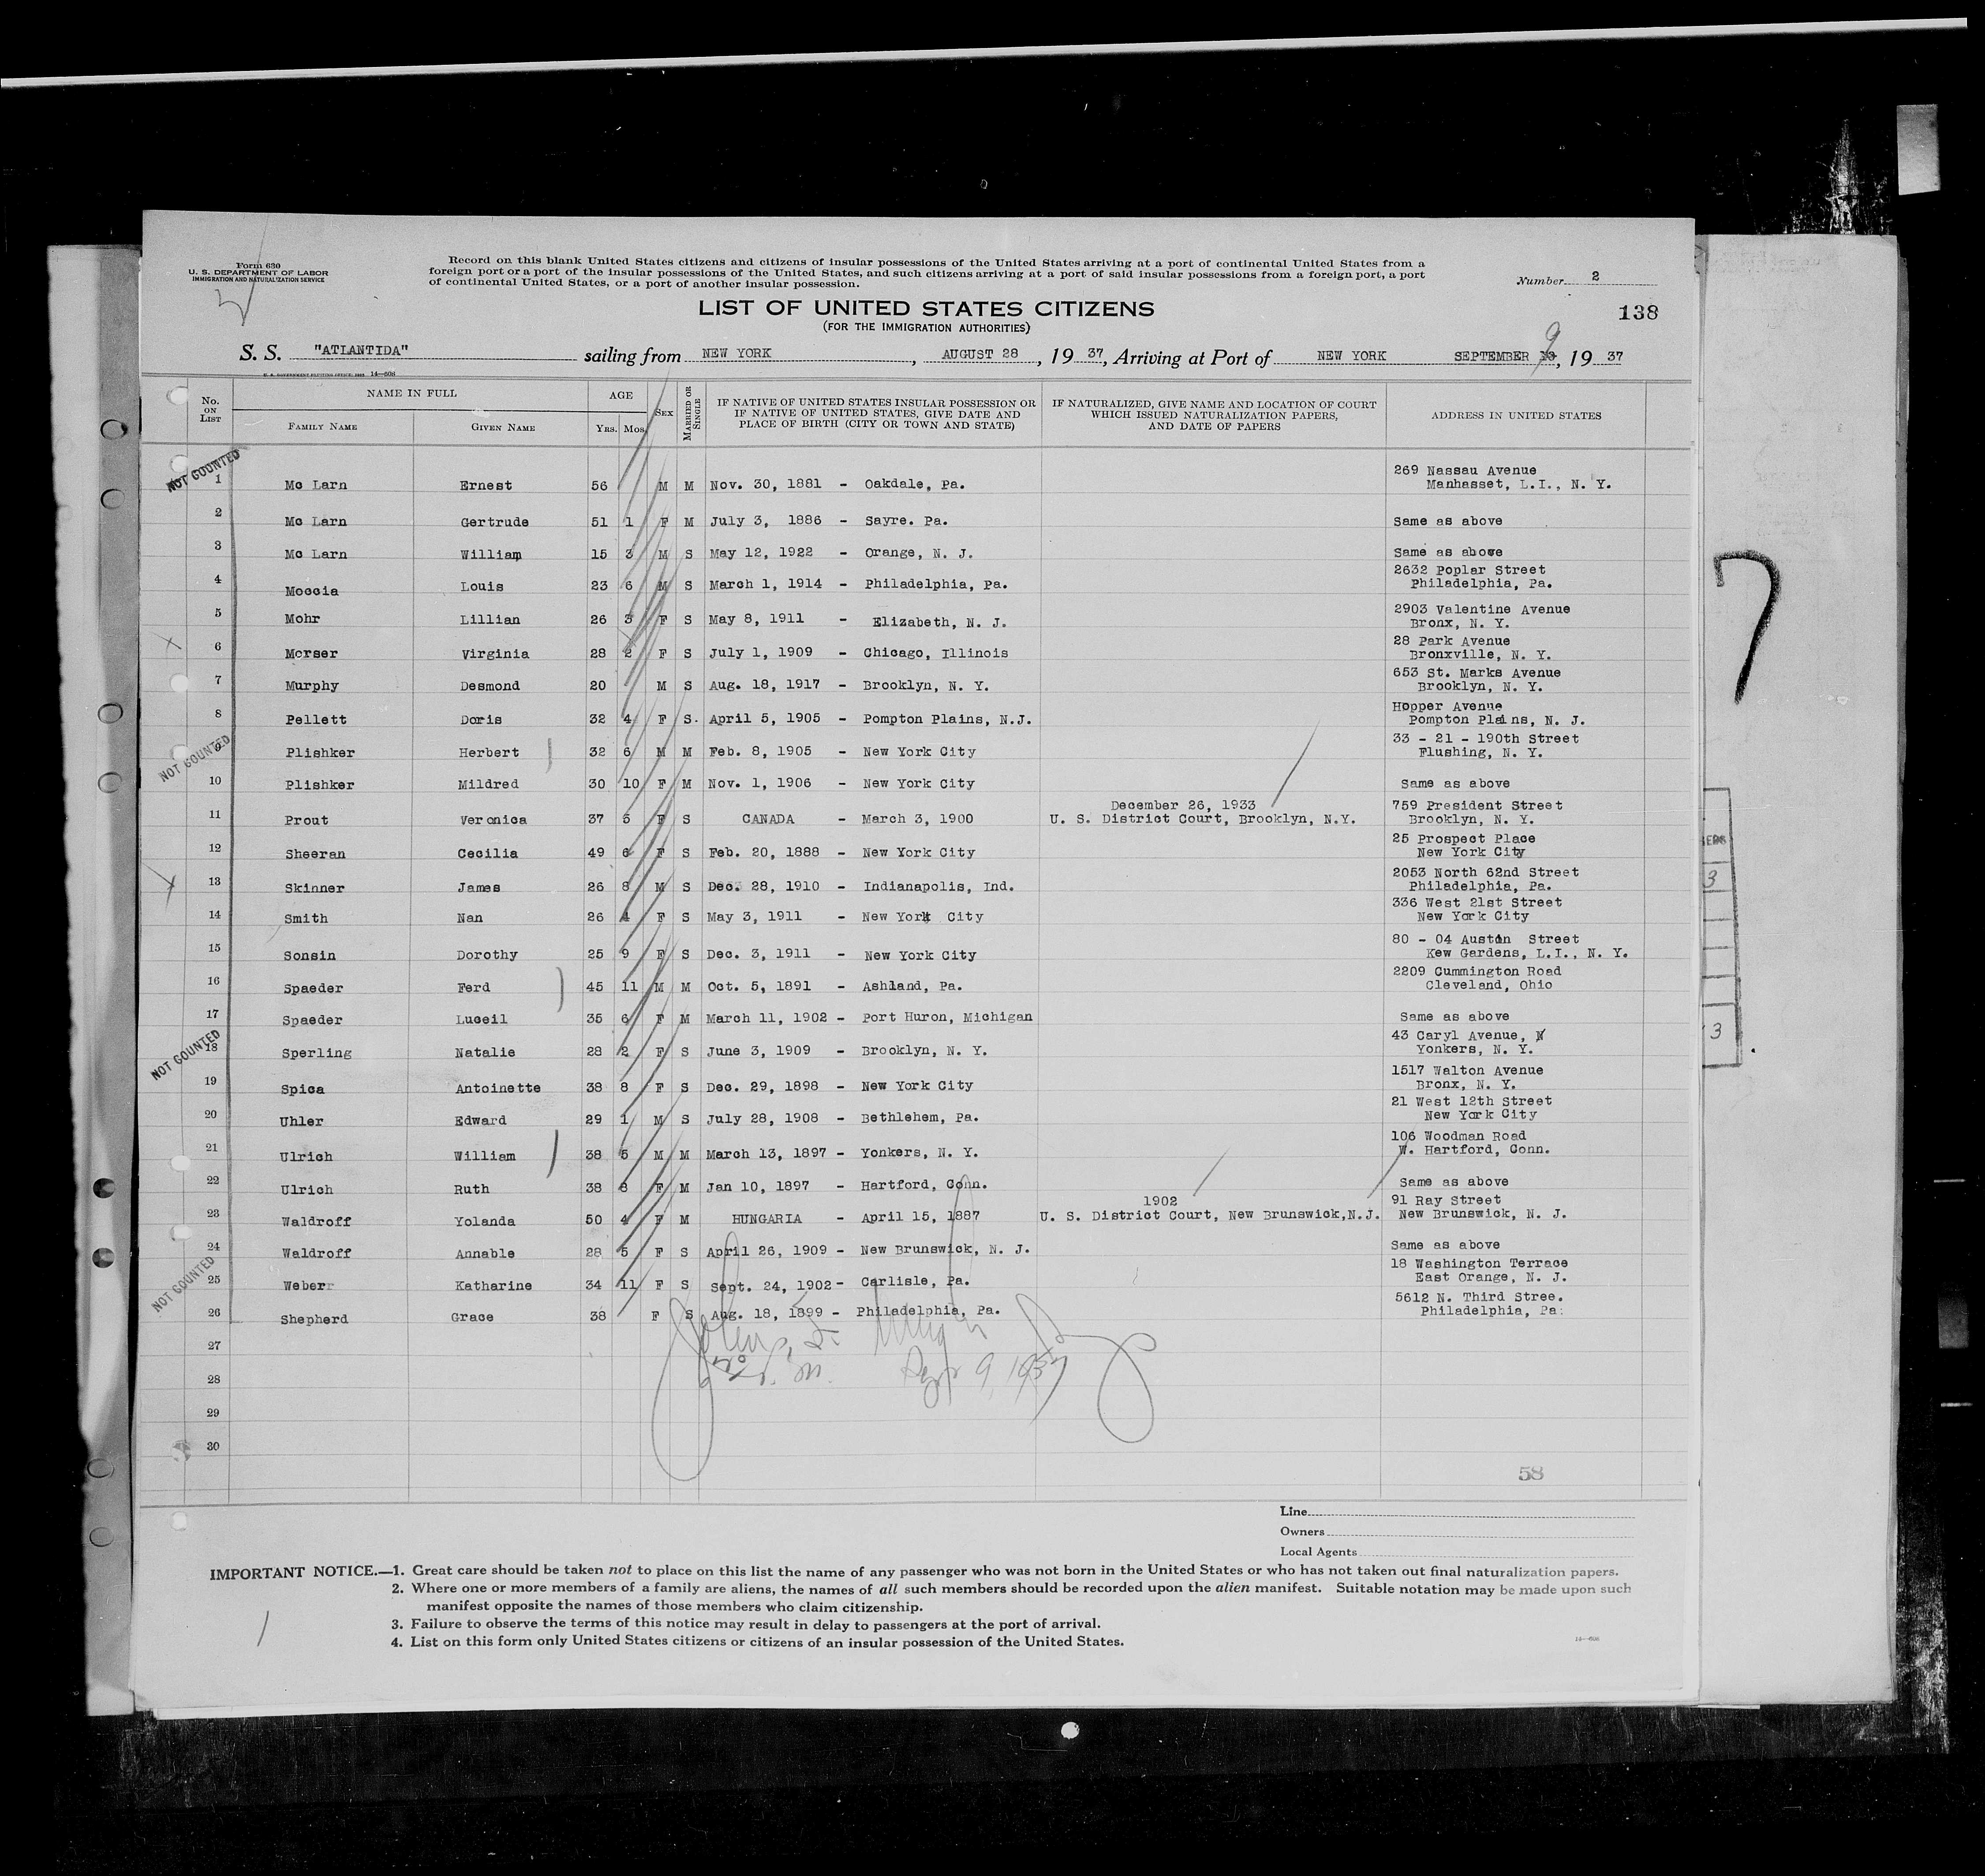 Form 630
U. S. DEPARTMENT OF LABOR
IMMIGRATION AND NATURALIZATION SERVICE
Record on this blank United States citizens and citizens of insular possessions of the United States arriving at a port of continental United States from a
foreign port or a port of the insular possessions of the United States, and such citizens arriving at a port of said insular possessions from a foreign port, a port
of continental United States, or a port of another insular possession.
Number 2
LIST OF UNITED STATES CITIZENS
(FOR THE IMMIGRATION AUTHORITIES)
138
S. S. "ATLANTIDA" sailing from NEW YORK, AUGUST 28, 1937, Arriving at Port of NEW YORK SEPTEMBER 9, 1937
14—608
No. ON LIST NAME IN FULL AGE SEX MARRIED OR SINGLE IF NATIVE OF UNITED STATES INSULAR POSSESSION OR IF NATIVE OF UNITED STATES, GIVE DATE AND PLACE OF BIRTH (CITY OR TOWN AND STATE) IF NATURALIZED, GIVE NAME AND LOCATION OF COURT WHICH ISSUED NATURALIZATION PAPERS, AND DATE OF PAPERS ADDRESS IN UNITED STATES
FAMILY NAME GIVEN NAME YRS. MOS.
NOT COUNTED
1 Mc Larn Ernest 56 M M Nov. 30, 1881 - Oakdale, Pa. 269 Nassau Avenue Manhasset, L.I., N. Y.
2 Mc Larn Gertrude 51 1 F M July 3, 1886 - Sayre. Pa. Same as above
3 Mc Larn William 15 3 M S May 12, 1922 - Orange, N. J. Same as above
4 Moccia Louis 23 6 M S March 1, 1914 - Philadelphia, Pa. 2632 Poplar Street Philadelphia, Pa.
5 Mohr Lillian 26 3 F S May 8, 1911 - Elizabeth, N. J. 2903 Valentine Avenue Bronx, N. Y.
6 Morser Virginia 28 2 F S July 1, 1909 - Chicago, Illinois 28 Park Avenue Bronxville, N. Y.
7 Murphy Desmond 20 M S Aug. 18, 1917 - Brooklyn, N. Y. 653 St. Marks Avenue Brooklyn, N. Y.
8 Pellett Doris 32 4 F S. April 5, 1905 - Pompton Plains, N.J. Hopper Avenue Pompton Plains, N. J.
NOT COUNTED
9 Plishker Herbert 32 6 M M Feb. 8, 1905 - New York City 33 - 21 - 190th Street Flushing, N. Y.
10 Plishker Mildred 30 10 F M Nov. 1, 1906 - New York City Same as above
11 Prout Veronica 37 5 F S CANADA - March 3, 1900 December 26, 1933 U. S. District Court, Brooklyn, N.Y. 759 President Street Brooklyn, N. Y.
12 Sheeran Cecilia 49 6 F S Feb. 20, 1888 - New York City 25 Prospect Place New York City
13 Skinner James 26 8 M S Dec. 28, 1910 - Indianapolis, Ind. 2053 North 62nd Street Philadelphia, Pa.
14 Smith Nan 26 4 F S May 3, 1911 - New York City 336 West 21st Street New York City
15 Sonsin Dorothy 25 9 F S Dec. 3, 1911 - New York City 80 - 04 Austin Street Kew Gardens, L.I., N. Y.
16 Spaeder Ferd 45 11 M M Oct. 5, 1891 - Ashland, Pa. 2209 Cummington Road Cleveland, Ohio
17 Spaeder Luceil 35 6 F M March 11, 1902 - Port Huron, Michigan Same as above
NOT COUNTED
18 Sperling Natalie 28 2 F S June 3, 1909 - Brooklyn, N. Y. 43 Caryl Avenue, Yonkers, N. Y.
19 Spica Antoinette 38 8 F S Dec. 29, 1898 - New York City 1517 Walton Avenue Bronx, N. Y.
20 Uhler Edward 29 1 M S July 28, 1908 - Bethlehem, Pa. 21 West 12th Street New York City
21 Ulrich William 38 5 M M March 13, 1897 - Yonkers, N. Y. 106 Woodman Road W. Hartford, Conn.
22 Ulrich Ruth 38 8 F M Jan 10, 1897 - Hartford, Conn. Same as above
23 Waldroff Yolanda 50 4 F M HUNGARIA - April 15, 1887 1902 U. S. District Court, New Brunswick, N.J. 91 Ray Street New Brunswick, N. J.
24 Waldroff Annable 28 5 F S April 26, 1909 - New Brunswick, N. J. Same as above
NOT COUNTED
25 Weberr Katharine 34 11 F S Sept. 24, 1902 - Carlisle, Pa. 18 Washington Terrace East Orange, N. J.
26 Shepherd Grace 38 F S Aug. 18, 1899 - Philadelphia, Pa. 5612 N. Third Stree. Philadelphia, Pa.
27
28 Sep 9, 1937
29
30
58
Line
Owners
Local Agents
IMPORTANT NOTICE.—1. Great care should be taken not to place on this list the name of any passenger who was not born in the United States or who has not taken out final naturalization papers.
2. Where one or more members of a family are aliens, the names of all such members should be recorded upon the alien manifest. Suitable notation may be made upon such
manifest opposite the names of those members who claim citizenship.
3. Failure to observe the terms of this notice may result in delay to passengers at the port of arrival.
4. List on this form only United States citizens or citizens of an insular possession of the United States.
14—608
7
3
3